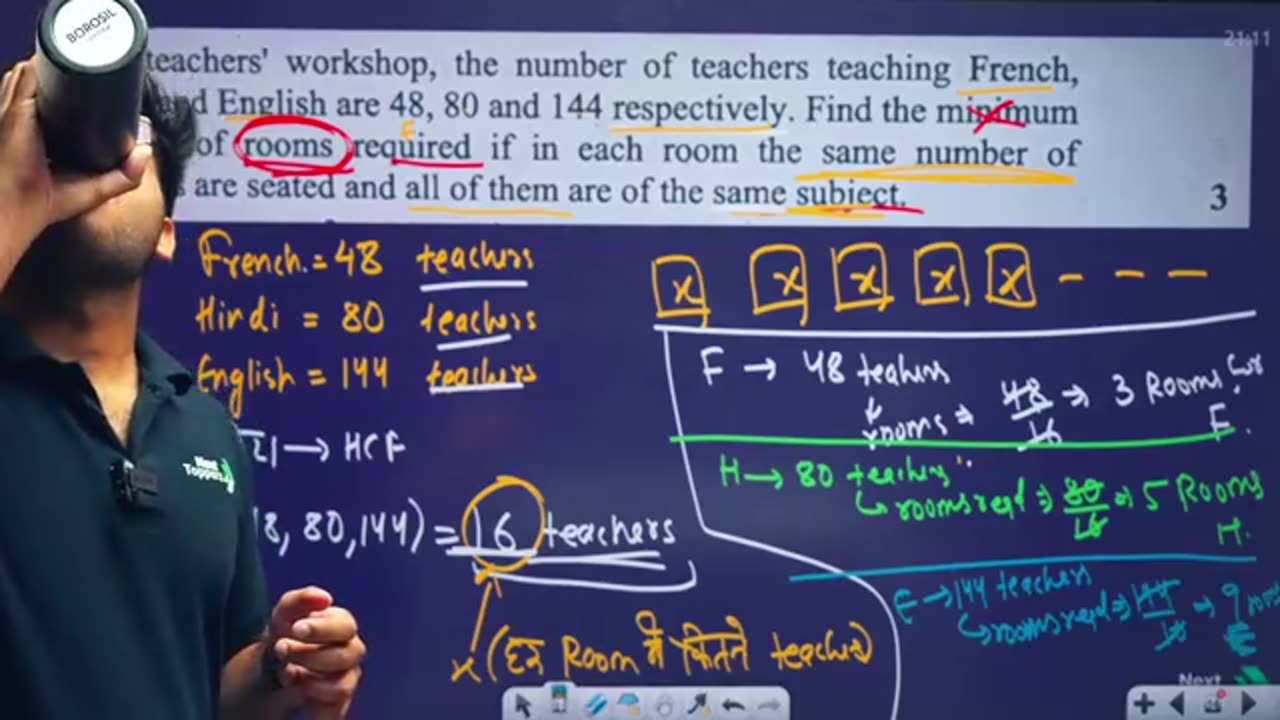 BOROSIL
21:11
teachers' workshop, the number of teachers teaching French,
nd English are 48, 80 and 144 respectively. Find the minimum
of rooms required if in each room the same number of
s are seated and all of them are of the same subject.
3
French = 48 teachers
Hindi = 80 teachers
English = 144 teachers
x x x x x - - -
F → 48 teachers
rooms ⇒ 48/16 ⇒ 3 Rooms for
F.
→ HCF
H → 80 teachers
rooms reqd ⇒ 80/16 ⇒ 5 Rooms
H.
8, 80, 144) = 16 teachers
E → 144 teachers
rooms reqd ⇒ 144/16 → 9 rooms
E
x (हर Room में कितने teachers)
Next Toppers
Next